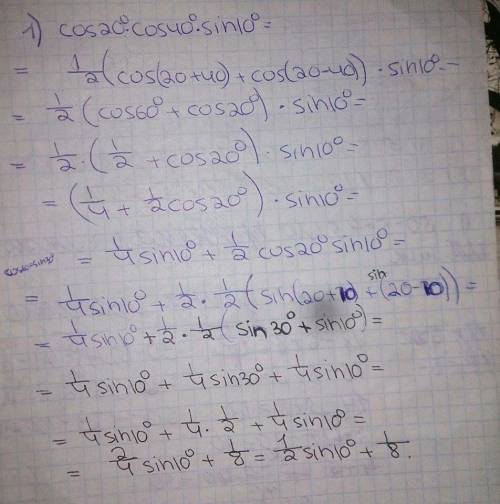 1) cos20°·cos40°·sin10°=
= 1/2 (cos(20+40) + cos(20-40)) · sin10° =
= 1/2 (cos60° + cos20°) · sin10° =
= 1/2 · (1/2 + cos20°) · sin10° =
= (1/4 + 1/2 cos20°) · sin10° =
= 1/4 sin10° + 1/2 cos20° sin10° =
= 1/4 sin10° + 1/2 · 1/2 (sin(20+10) + sin(20-10)) =
= 1/4 sin10° + 1/2 · 1/2 (sin30° + sin10°) =
= 1/4 sin10° + 1/4 sin30° + 1/4 sin10° =
= 1/4 sin10° + 1/4 · 1/2 + 1/4 sin10° =
= 2/4 sin10° + 1/8 = 1/2 sin10° + 1/8.